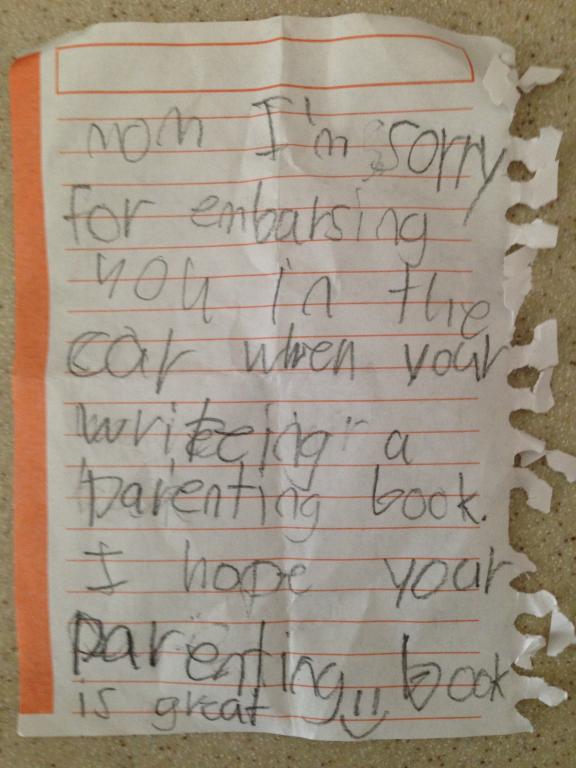 mom I'm sorry
for embarsing
you in the
car when your
writeing a
parenting book.
I hope your
parenting book
is great